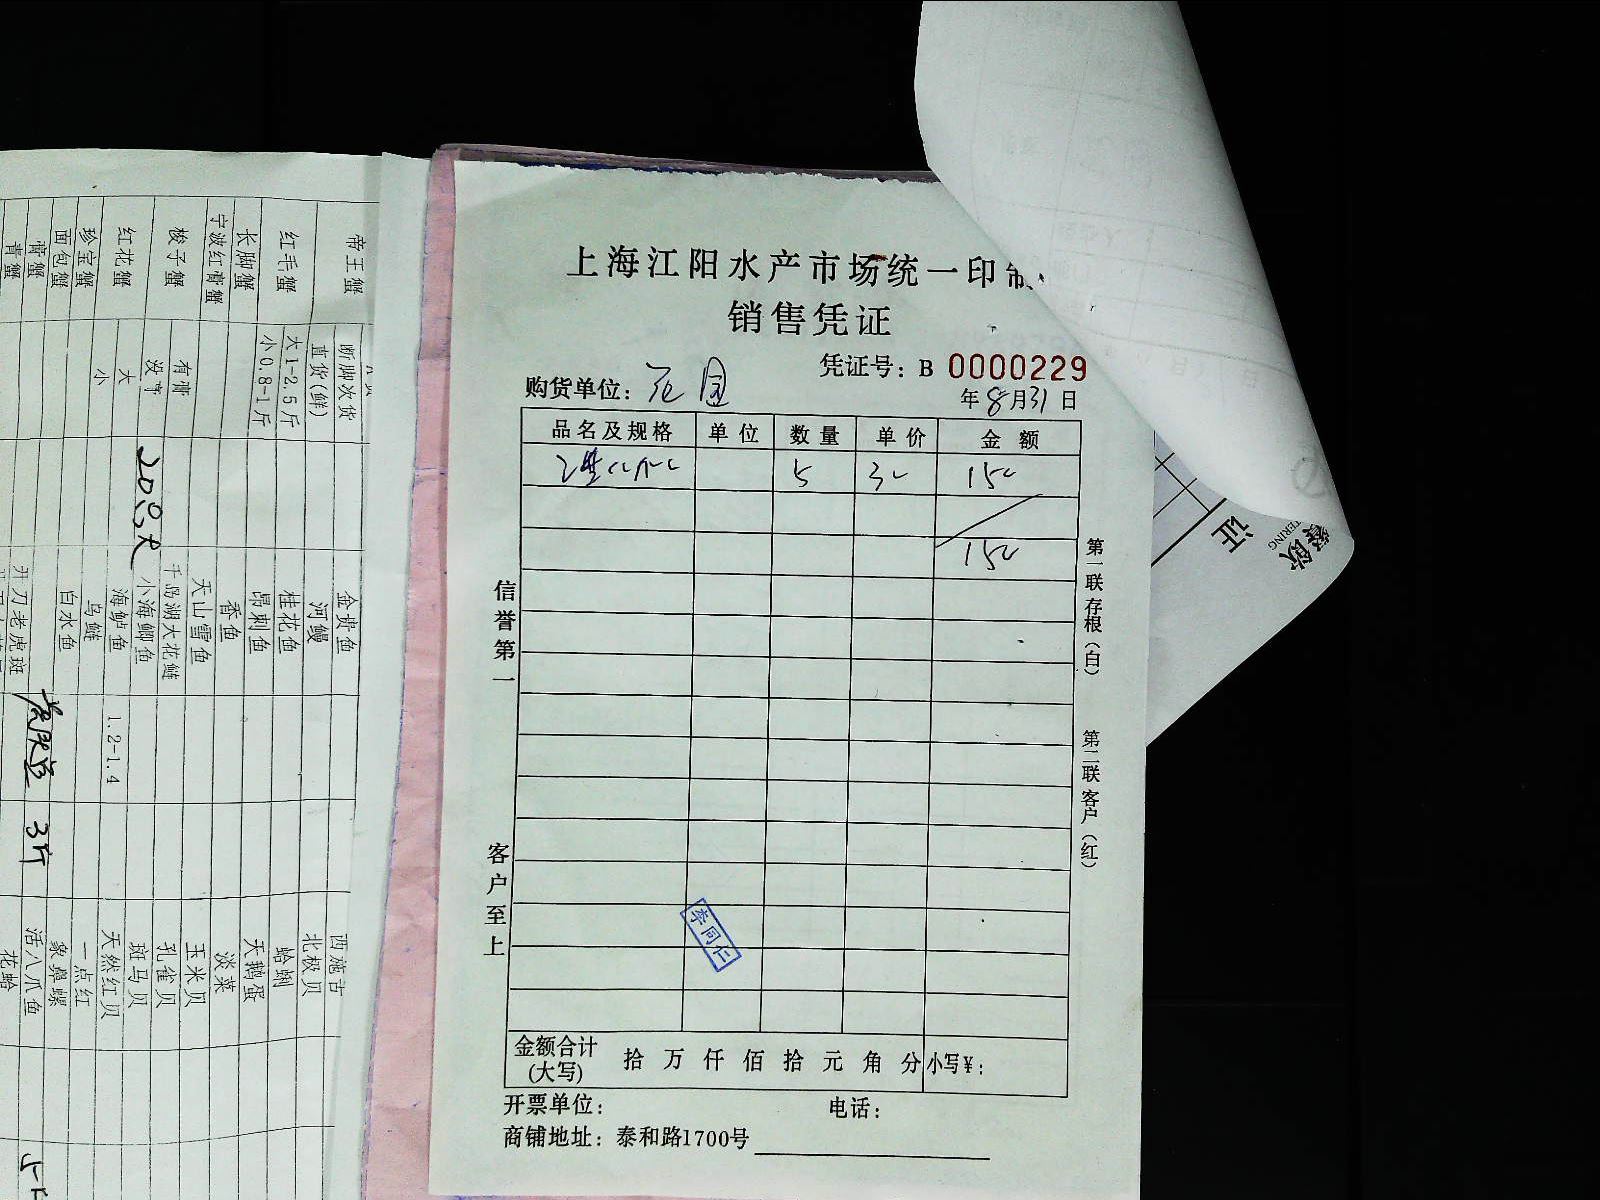 上海江阳水产市场统一印制
销售凭证
凭证号：B 0000229
购货单位：
年8月31日
品名及规格 单位 数量 单价 金额
5 30 150
150
信誉第一
客户至上
第一联存根（白）
第二联客户（红）
李同仁
金额合计（大写） 拾 万 仟 佰 拾 元 角 分 小写￥：
开票单位： 电话：
商铺地址：泰和路1700号
帝王蟹 断脚次货
直货(鲜)
红毛蟹 大1-2.5斤
小0.8-1斤
长脚蟹
宁波红膏蟹
梭子蟹 有膏
没膏
红花蟹 大
小
珍宝蟹
面包蟹
膏蟹
青蟹
金贵鱼
河鳗
桂花鱼
昂刺鱼
香鱼
天山雪鱼
千岛湖大花鲢
小海鲫鱼
海鲈鱼 1.2-1.4
乌鲢
白水鱼
升刀老虎斑
3斤
西施舌
北极贝
蛤蜊
天鹅蛋
淡菜
玉米贝
孔雀贝
斑马贝
天然红贝
一点红
象鼻螺
活八爪鱼
花蛤
餐饮
TERING
证